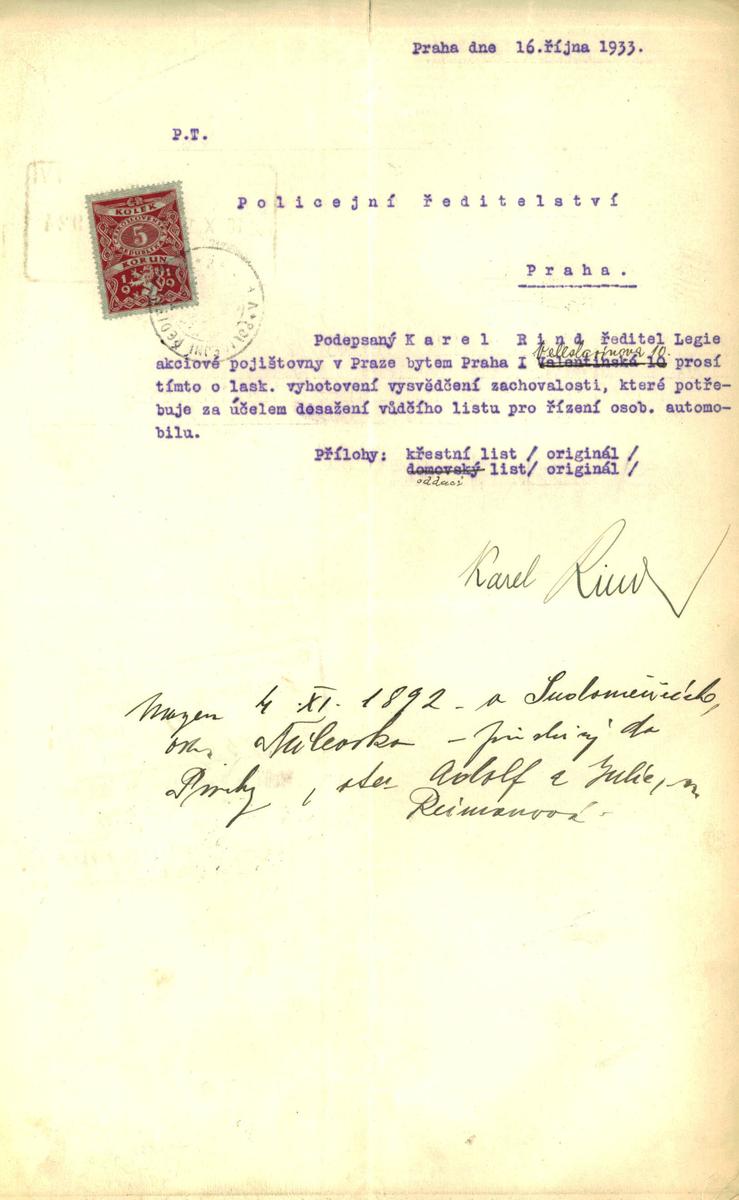 Praha dne 16.října 1933.
P.T.
Policejní ředitelství
KOLEK
5
KORUN
1919
Praha.
Podepsaný Karel Rind ředitel Legie
Veleslavínova 10.
akciové pojištovny v Praze bytem Praha I Valentinská 10 prosí
tímto o lask. vyhotovení vysvědčení zachovalosti, které potře-
buje za účelem dosažení vůdčího listu pro řízení osob. automo-
bilu.
Přílohy: křestní list / originál /
domovský list/ originál /
oddací
Karel Rind
4 XI. 1892 - v Sudoměřicích,
Milevsko - do
Prahy, otec Adolf a Julie, r.
Reimanová